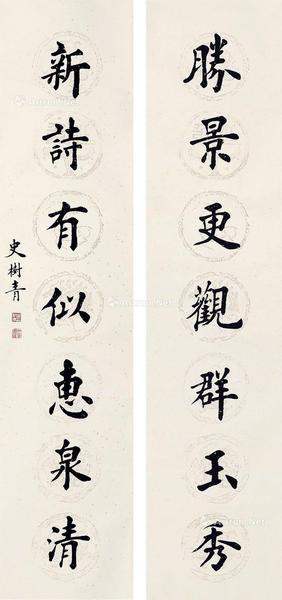 勝景更觀群玉秀
新詩有似惠泉清
史樹青